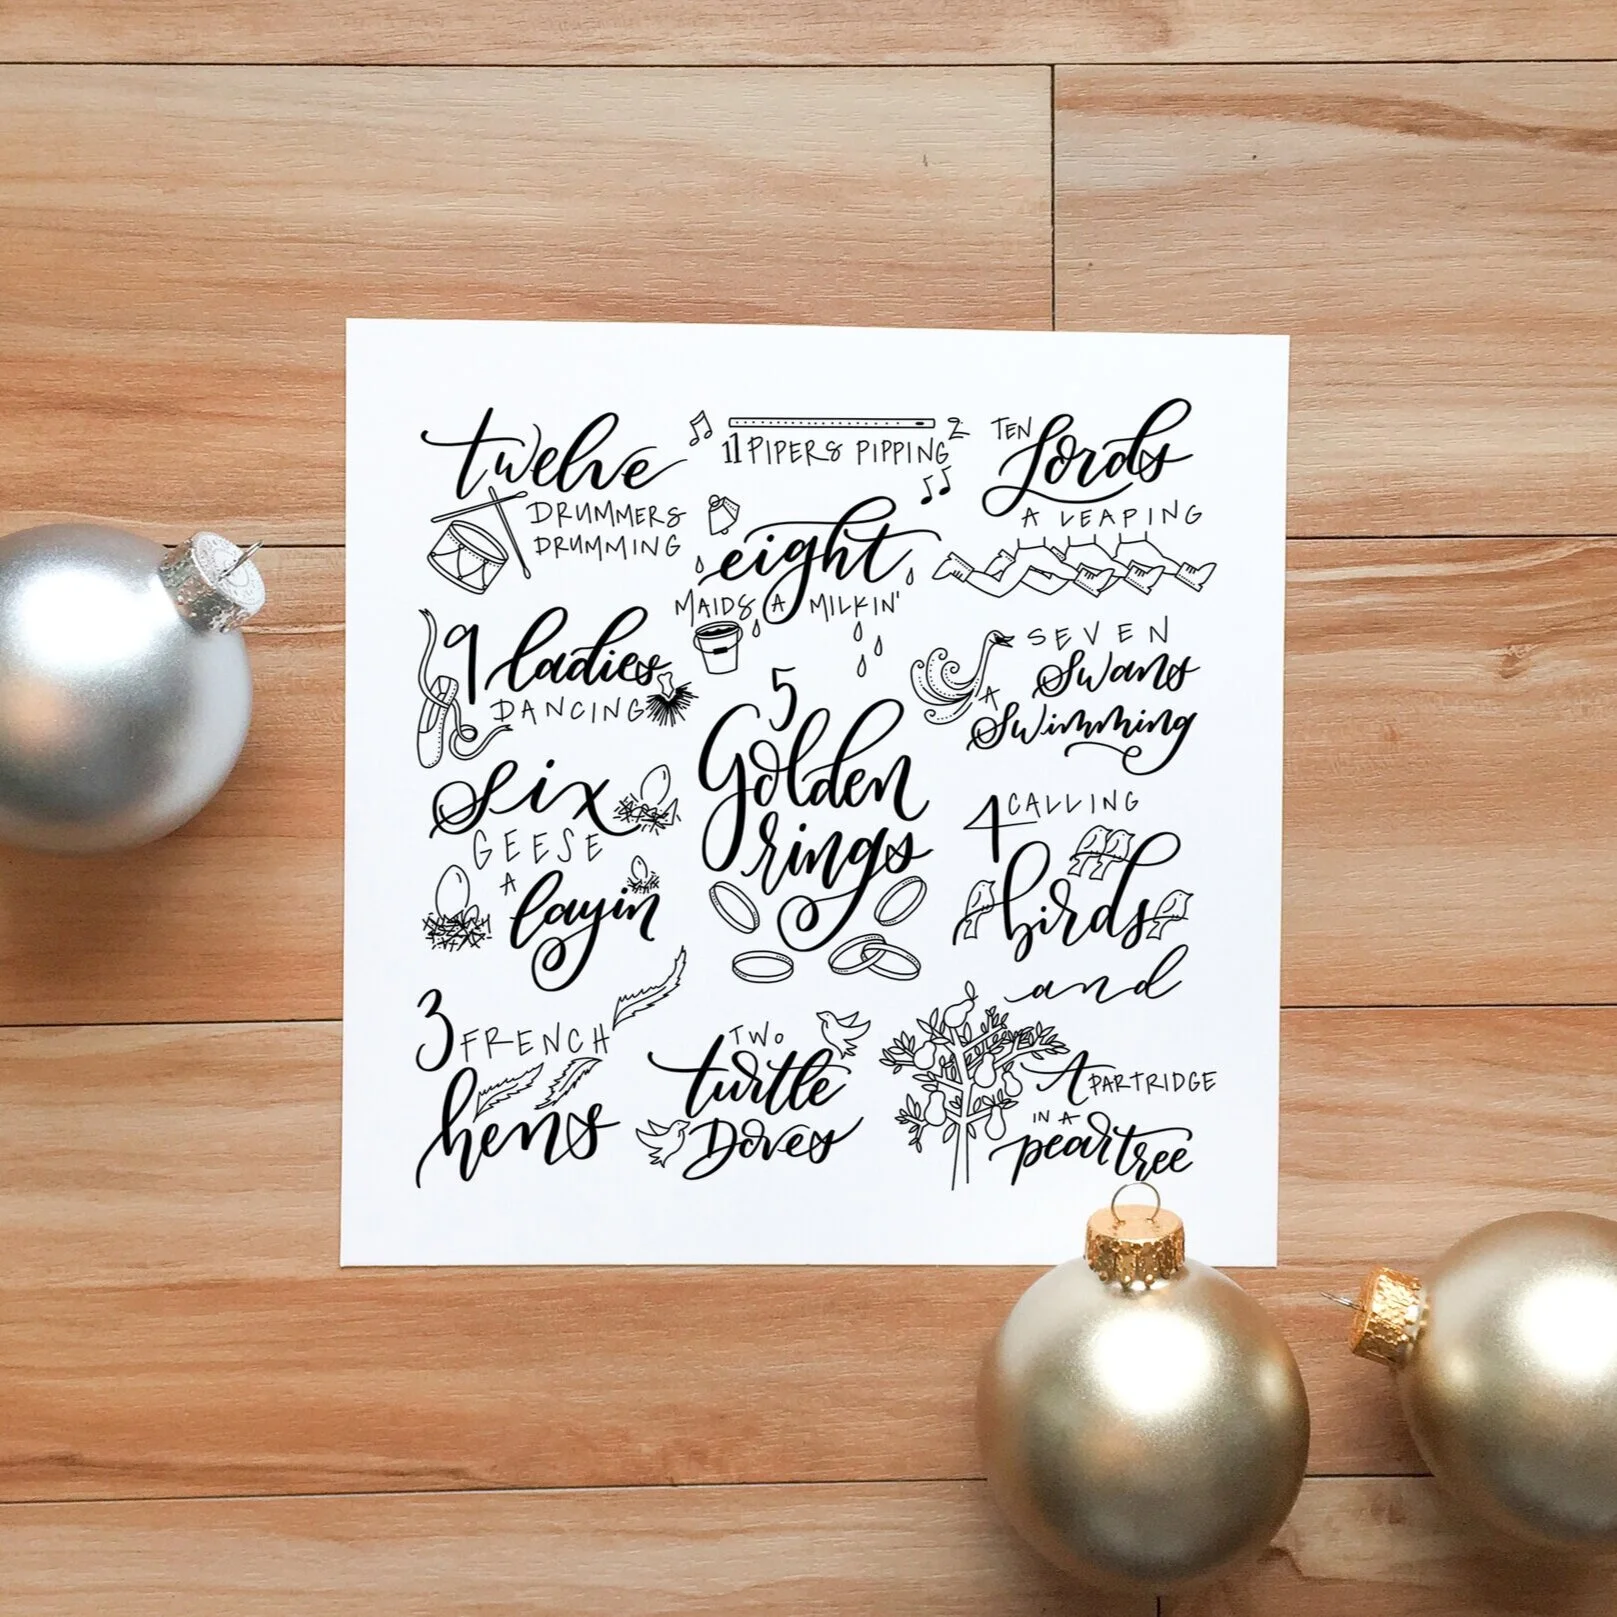 twelve
DRUMMERS
DRUMMING
11 PIPERS PIPPING
TEN
Lords
A LEAPING
9 ladies
DANCING
eight
MAIDS A MILKIN'
SEVEN
Swans
A
Swimming
six
GEESE
A
layin
5
Golden
rings
4 CALLING
birds
and
3 FRENCH
hens
TWO
turtle
Doves
A PARTRIDGE
IN A
pear tree